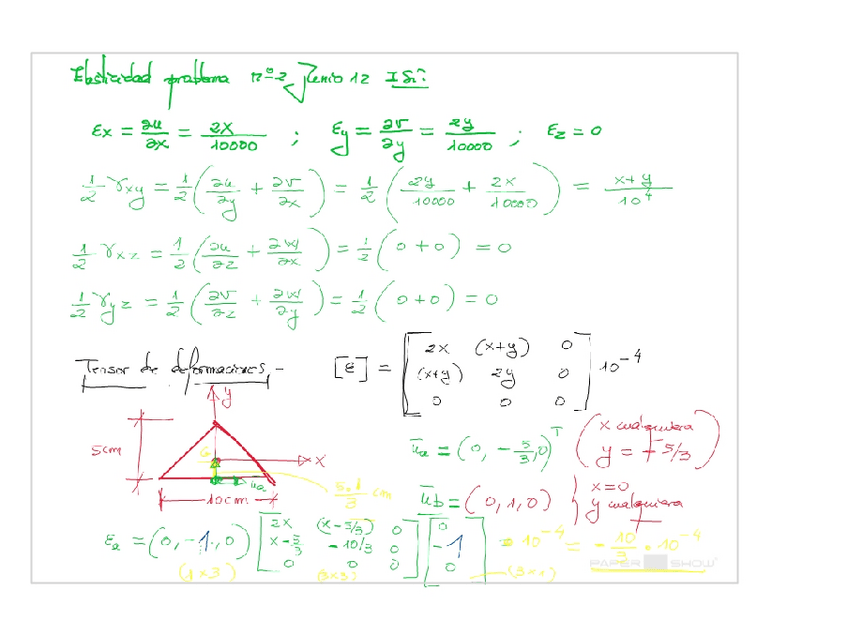 Elasticidad problema nº 2 Junio 12 I Si:
εx = ∂u/∂x = 2x/10000 ; εy = ∂v/∂y = 2y/10000 ; εz = 0
1/2 γxy = 1/2 (∂u/∂y + ∂v/∂x) = 1/2 (2y/10000 + 2x/10000) = x+y/10⁴
1/2 γxz = 1/2 (∂u/∂z + ∂w/∂x) = 1/2 (0 + 0) = 0
1/2 γyz = 1/2 (∂v/∂z + ∂w/∂y) = 1/2 (0 + 0) = 0
Tensor de deformaciones - [ε] = [2x (x+y) 0
(x+y) 2y 0
0 0 0] 10⁻⁴
y
5cm
G
x
ua
10cm
5·1/3 cm
ūa = (0, -5/3, 0)ᵀ (x cualquiera
y = -5/3)
ūb = (0, 1, 0) } x=0
y cualquiera
εa = (0, -1, 0) [2x (x-5/3) 0
x-5/3 -10/3 0
0 0 0] [0
-1
0] = 10⁻⁴ = -10/3 · 10⁻⁴
(1x3) (3x3) (3x1)
PAPER SHOW